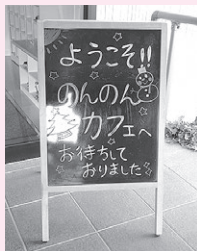 ようこそ!!
のんのん
カフェへ
お待ちして
おりました